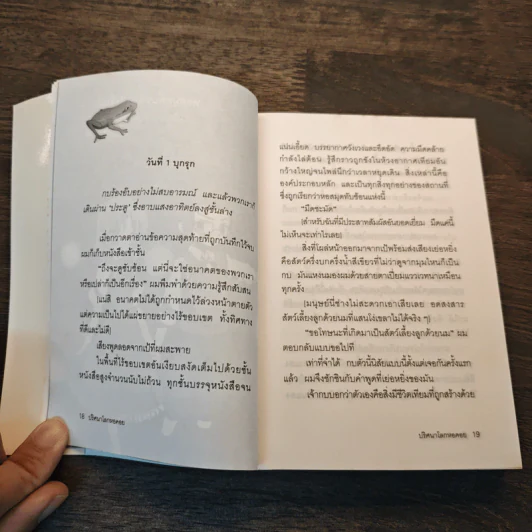 วันที่ 1 บุกรุก
กบร้องขับอย่างไม่สบอารมณ์ และแล้วพวกเราก็
เดินผ่าน 'ประตู' ซึ่งอาบแสงอาทิตย์ลงสู่ชั้นล่าง
เมื่อกวาดตาอ่านข้อความสุดท้ายที่ถูกบันทึกไว้จบ
ผมก็เก็บหนังสือเข้าชั้น
"ถึงจะดูซับซ้อน แต่นี่จะใช่อนาคตของพวกเรา
หรือเปล่าก็เป็นอีกเรื่อง" ผมพึมพำด้วยความรู้สึกสับสน
(แน่สิ อนาคตไม่ได้ถูกกำหนดไว้ล่วงหน้าตายตัว
แต่ความเป็นไปได้แผ่ขยายอย่างไร้ขอบเขต ทั้งทิศทาง
ที่ดีและไม่ดี)
เสียงพูดลอดจากเป้ที่ผมสะพาย
ในพื้นที่ไร้ขอบเขตอันเงียบสงัดเต็มไปด้วยชั้น
หนังสือสูงจำนวนนับไม่ถ้วน ทุกชั้นบรรจุหนังสือจน
18 ปริศนาโลกหอคอย
แน่นเอี้ยด บรรยากาศวังเวงและอึดอัด ความมืดคล้าย
กำลังไล่ต้อน รู้สึกราวถูกขังในห้วงอากาศเทียมอัน
กว้างใหญ่จนไพล่นึกว่าเวลาหยุดเดิน สิ่งเหล่านี้คือ
องค์ประกอบหลัก และเป็นทุกสิ่งทุกอย่างของสถานที่
ซึ่งถูกเรียกว่าหอสมุดทับซ้อนแห่งนี้
"มืดชะมัด"
(สำหรับฉันที่มีประสาทสัมผัสอันยอดเยี่ยม มืดแค่นี้
ไม่เห็นจะเท่าไรเลย)
สิ่งที่โผล่หน้าออกมาจากเป้พร้อมส่งเสียงเย่อหยิ่ง
คือสัตว์ครึ่งบกครึ่งน้ำสีเขียวที่ไม่ว่าดูจากมุมไหนก็เป็น
กบ มันแหงนมองผมด้วยสายตาเปี่ยมแววเวทนาเหมือน
ทุกครั้ง
(มนุษย์นี่ช่างไม่สะดวกเอาเสียเลย อดสงสาร
สัตว์เลี้ยงลูกด้วยนมที่แสนโง่เขลาไม่ได้จริง ๆ)
"ขอโทษนะที่เกิดมาเป็นสัตว์เลี้ยงลูกด้วยนม" ผม
ตอบกลับแบบขอไปที
เท่าที่จำได้ กบตัวนี้นิสัยแบบนี้ตั้งแต่เจอกันครั้งแรก
แล้ว ผมจึงชักชินกับคำพูดที่เย่อหยิ่งของมัน
เจ้ากบบอกว่าตัวเองคือสิ่งมีชีวิตเทียมที่ถูกสร้างด้วย
ปริศนาโลกหอคอย 19